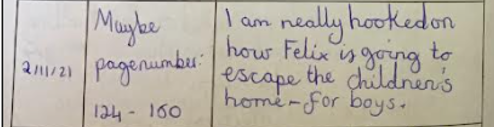 2/11/21
Maybe
pagenumber:
124 - 160
I am really hooked on
how Felix is going to
escape the childnen's
home - for boys.